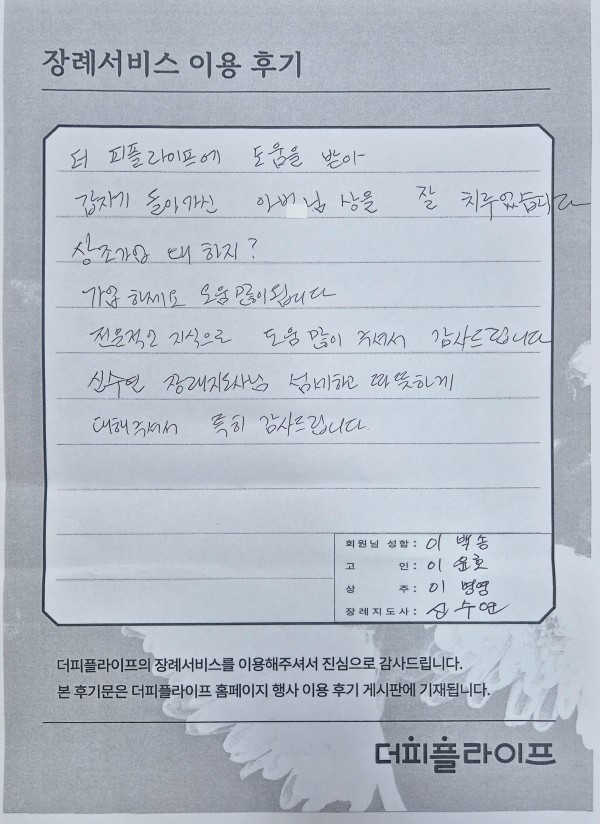 장례서비스 이용 후기
더 피플라이프에 도움을 받아
갑자기 돌아가신 아버님 상을 잘 치루었습니다
상조가입 왜 하지?
가입 하세요 도움 많이 됩니다
전문적인 지식으로 도움 많이 주셔서 감사드립니다
신수연 장래지도사님 섬세하고 따뜻하게
대해주셔서 특히 감사드립니다.
회원님 성함 : 이 백송
고 인 : 이 윤호
상 주 : 이 병영
장례지도사 : 신 수연
더피플라이프의 장례서비스를 이용해주셔서 진심으로 감사드립니다.
본 후기문은 더피플라이프 홈페이지 행사 이용 후기 게시판에 기재됩니다.
더피플라이프